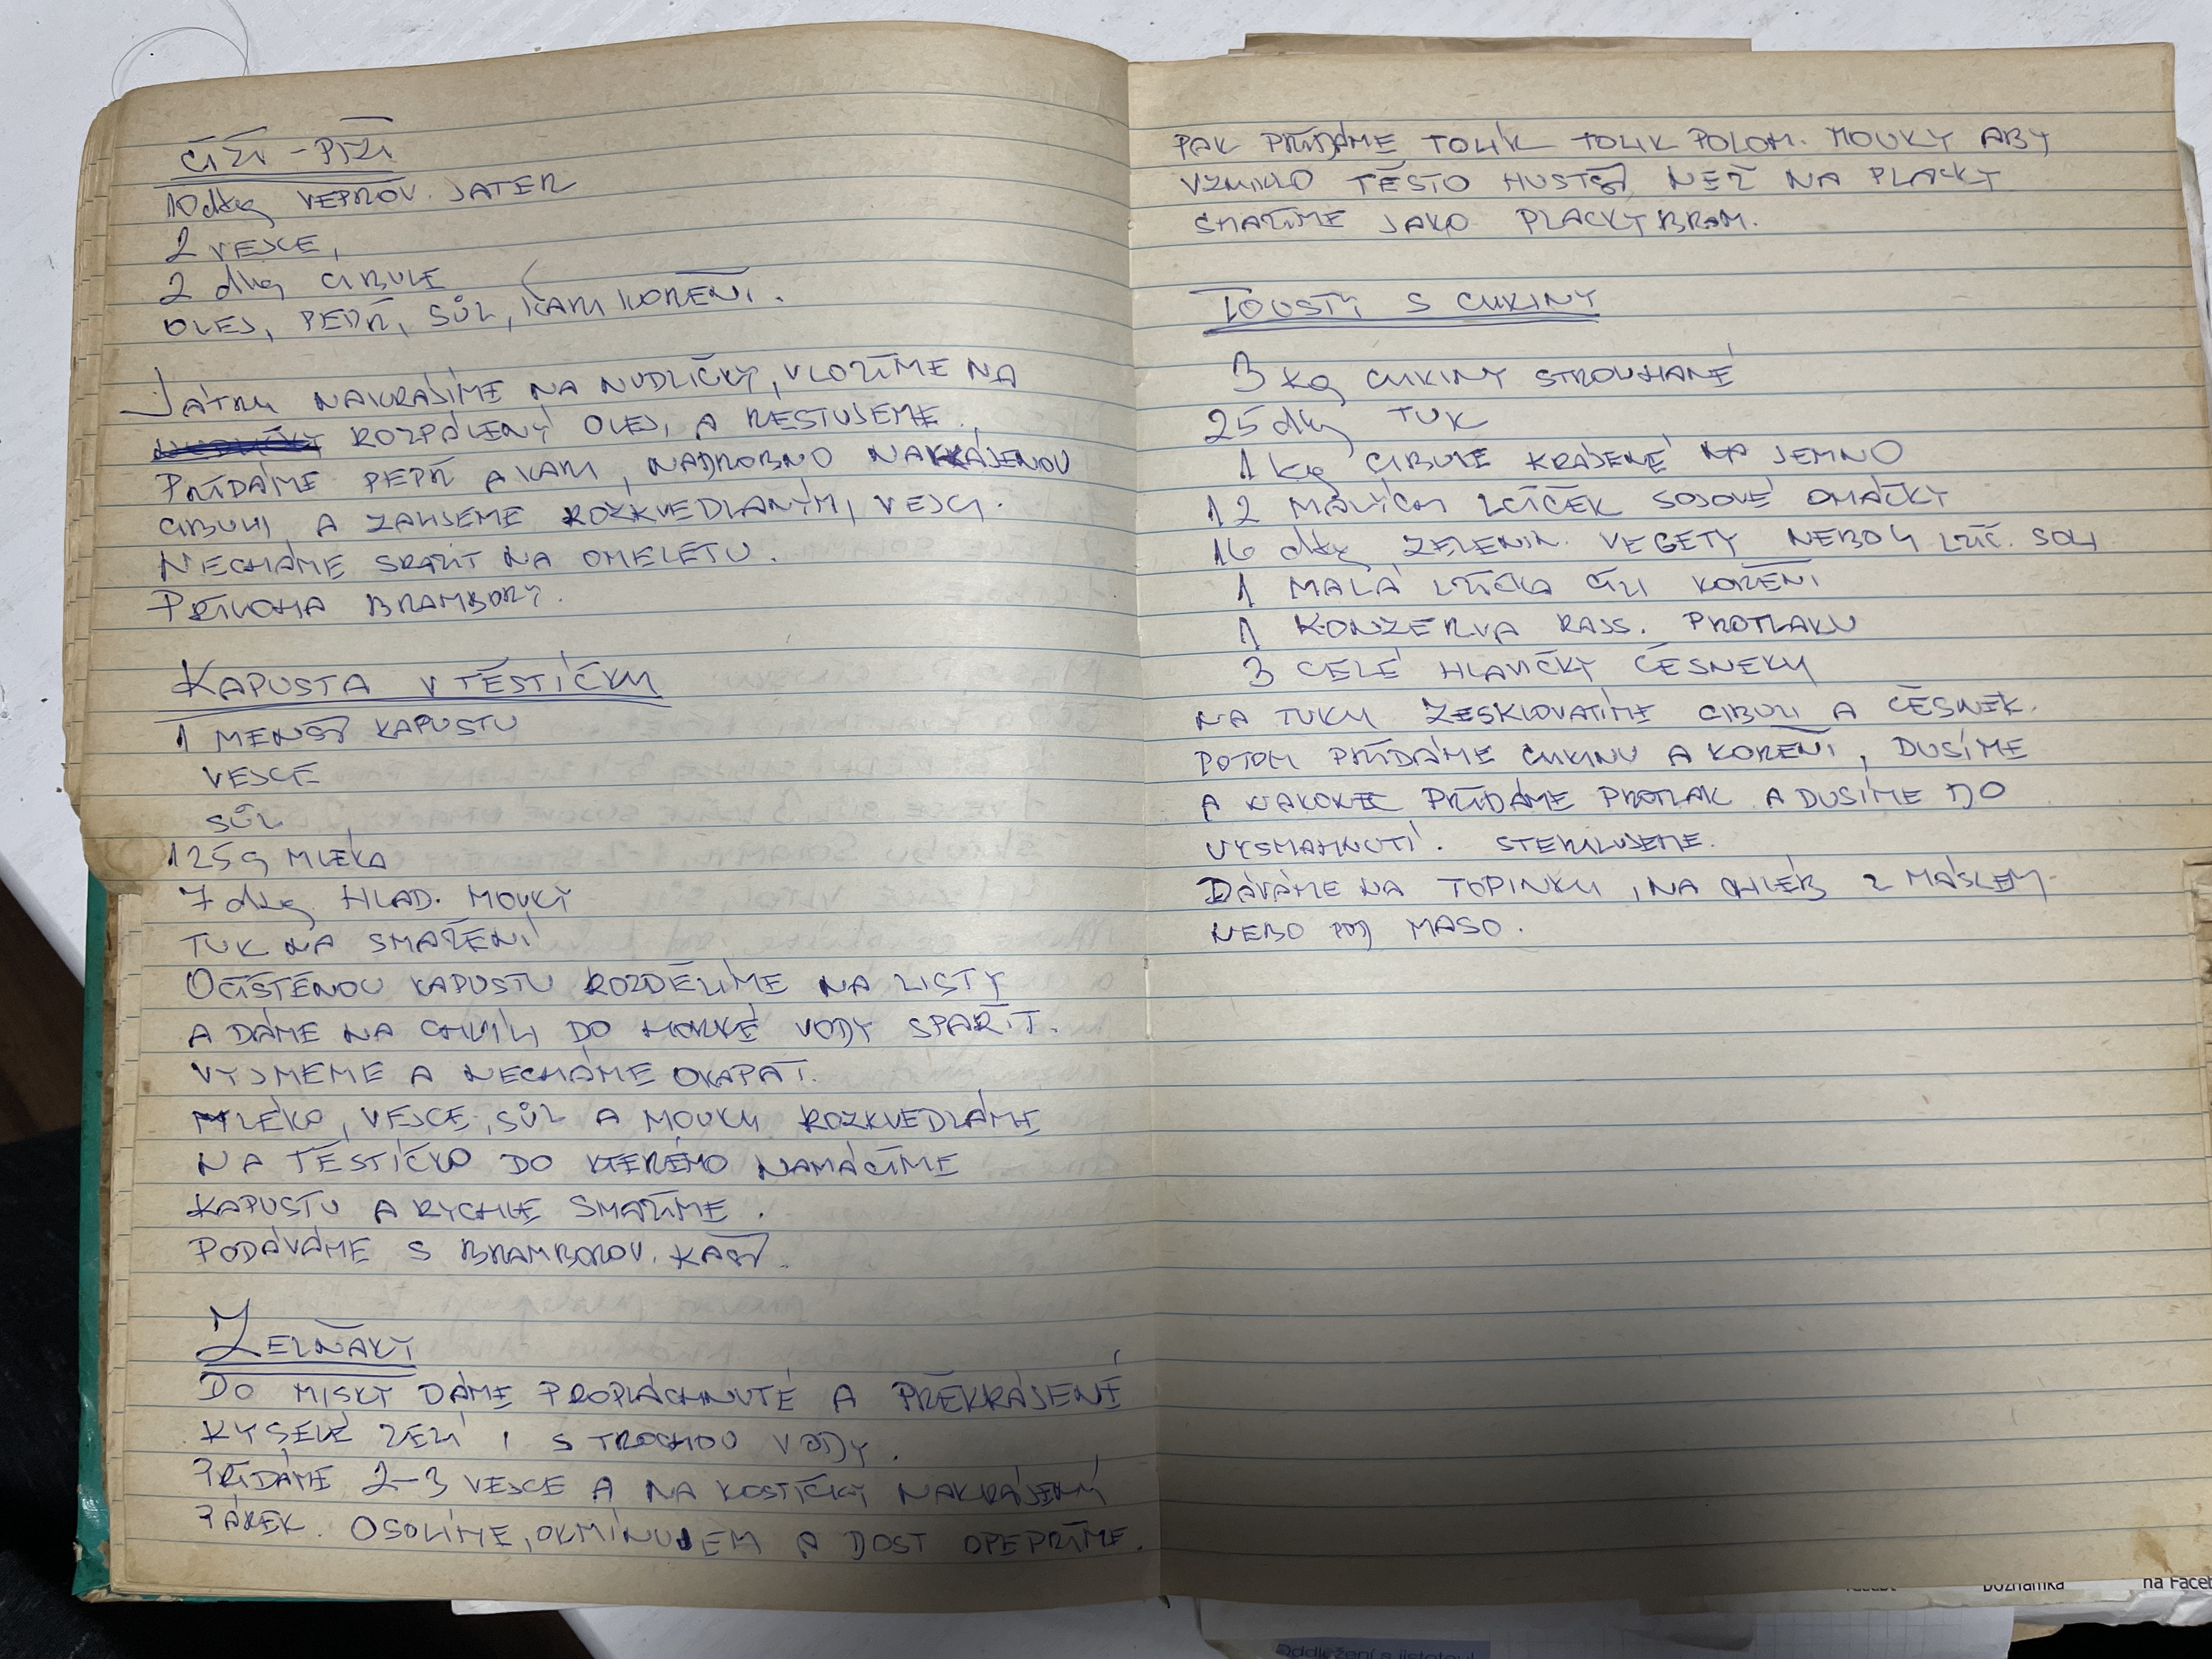 ČIŽI - PIŽI
10dkg VEPŘOV. JATER
2 VEJCE,
2 dkg CIBULE
OLEJ, PEPŘ, SŮL, KARI KOŘENÍ.
JÁTRA NAKRÁJÍME NA NUDLIČKY, VLOŽÍME NA
ROZPÁLENÝ OLEJ, A RESTUJEME.
PŘIDÁME PEPŘ A KARI, NADROBNO NAKRÁJENOU
CIBULI A ZALIJEME ROZKVEDLANÝMI VEJCI.
NECHÁME SRAZIT NA OMELETU.
PŘÍLOHA BRAMBORY.
KAPUSTA V TĚSTÍČKU
1 MENŠÍ KAPUSTU
VEJCE
SŮL
125g MLÉKA
7 dkg HLAD. MOUKY
TUK NA SMAŽENÍ
OČIŠTĚNOU KAPUSTU ROZDĚLÍME NA LISTY
A DÁME NA CHVÍLI DO HORKÉ VODY SPAŘIT.
VYJMEME A NECHÁME OKAPAT.
MLÉKO, VEJCE, SŮL A MOUKU ROZKVEDLÁME
NA TĚSTÍČKO DO KTERÉHO NAMÁČÍME
KAPUSTU A RYCHLE SMAŽÍME.
PODÁVÁME S BRAMBOROV. KAŠÍ.
ZELŇÁKY
DO MISKY DÁME PROPLÁCHNUTÉ A PŘEKRÁJENÉ
KYSELÉ ZELÍ I S TROCHOU VODY.
PŘIDÁME 2-3 VEJCE A NA KOSTIČKY NAKRÁJENÝ
PÁREK. OSOLÍME, OKMÍNUJEM A DOST OPEPŘÍME.
PAK PŘIDÁME TOLIK TOLIK POLOH. MOUKY ABY
VZNIKLO TĚSTO HUSTĚJŠÍ NEŽ NA PLACKY
SMAŽÍME JAKO PLACKY BRAM.
TOUSTY S CUKINY
3 kg CUKINY STROUHANÉ
25 dkg TUK
1 kg CIBULE KRÁJENÉ NA JEMNO
12 MALIČKÝCH LŽIČEK SOJOVÉ OMÁČKY
16 dkg ZELENIN. VEGETY NEBO 4 LŽIC. SOLI
1 MALÁ LŽIČKA ČILI KOŘENÍ
1 KONZERVA RAJS. PROTLAKU
3 CELÉ HLAVIČKY ČESNEKU
NA TUKU ZESKLOVATÍME CIBULI A ČESNEK.
POTOM PŘIDÁME CUKINU A KOŘENÍ, DUSÍME
A NAKONEC PŘIDÁME PROTLAK A DUSÍME DO
VYSMAHNUTÍ. STERILUJEME.
DÁVÁME NA TOPINKU, NA CHLÉB Z MÁSLEM,
NEBO POD MASO.